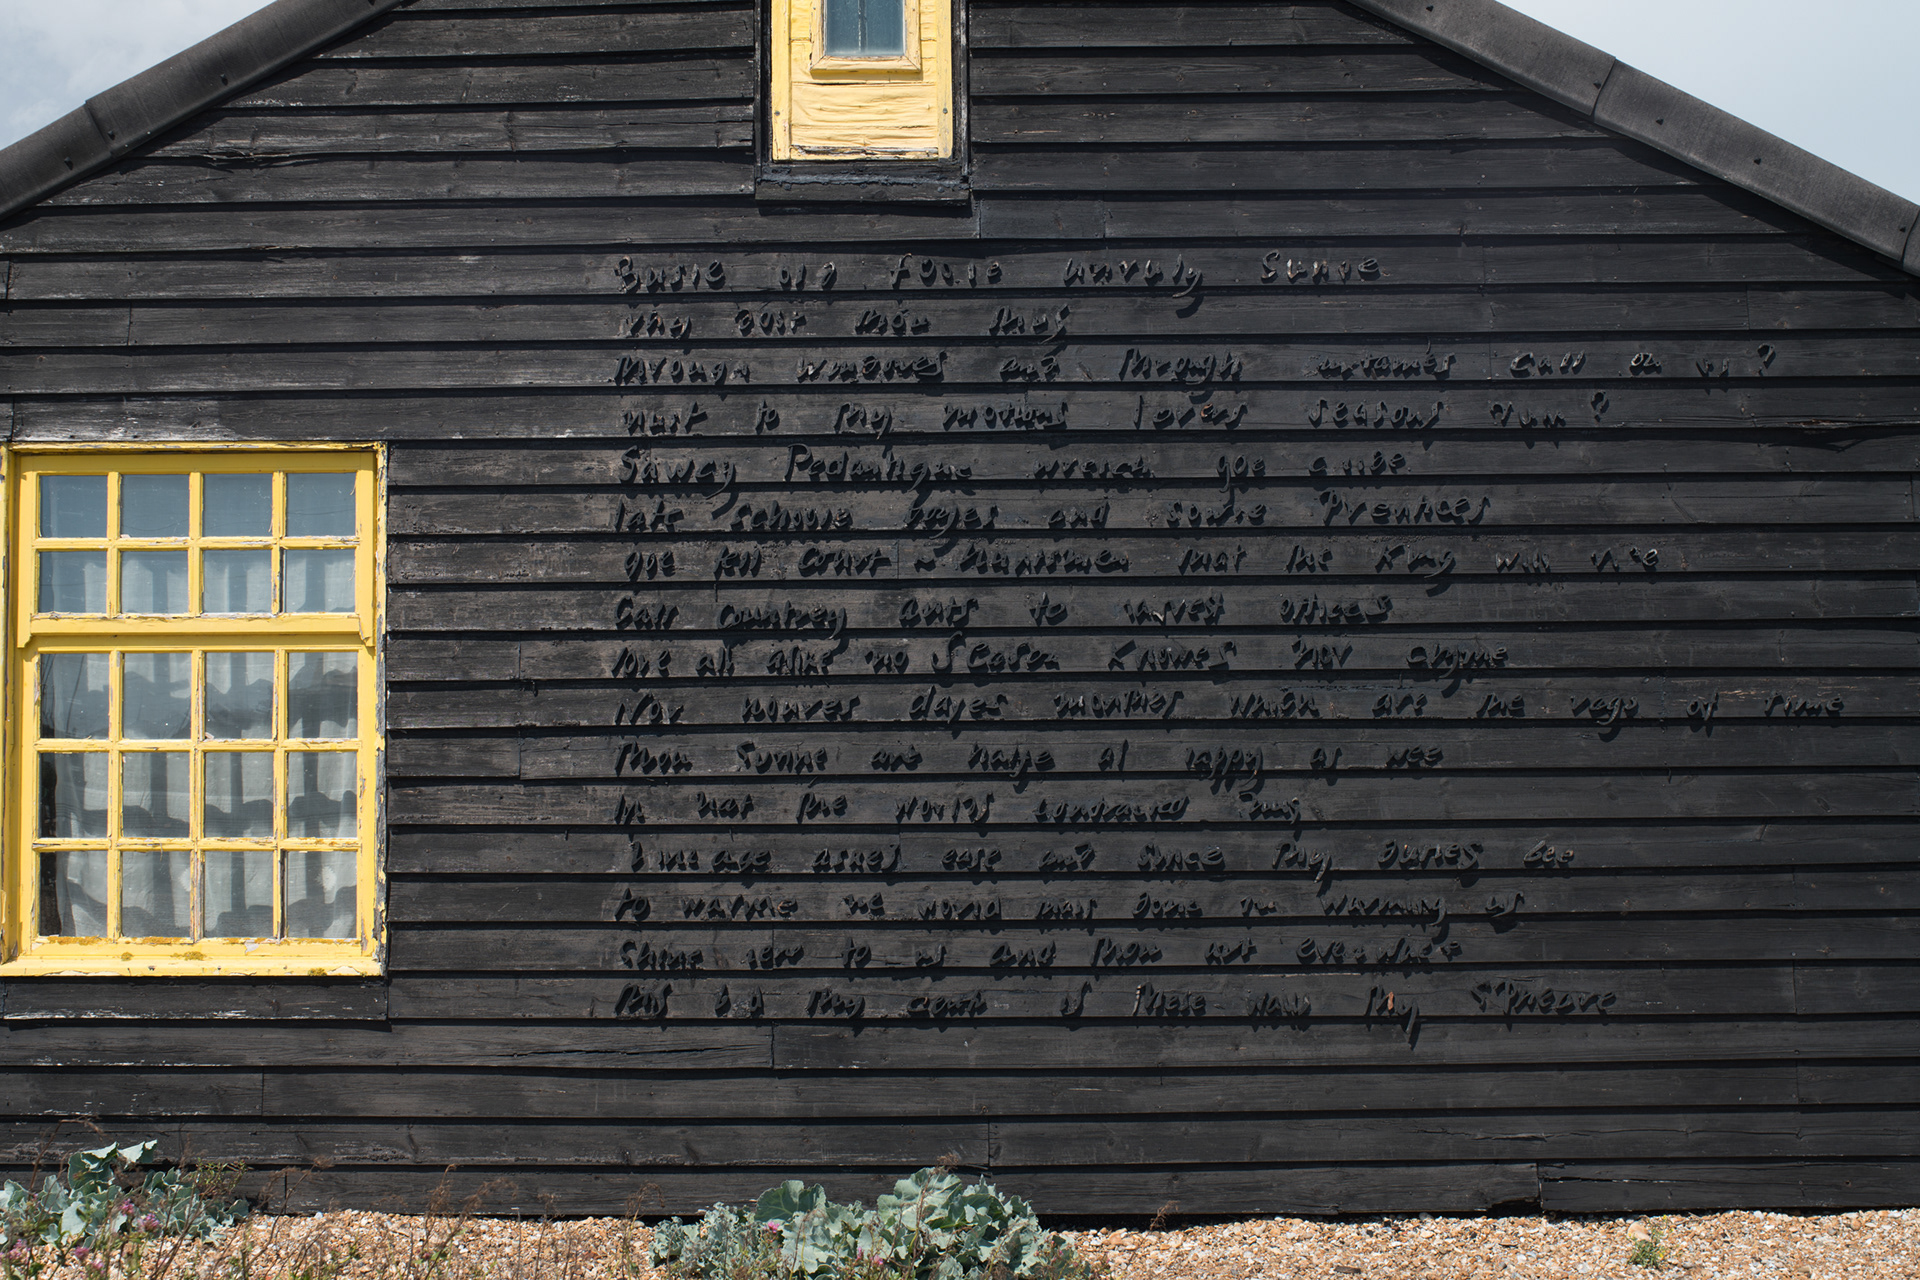 Busie old foole unruly Sunne
why dost thou thus
through windowes and through curtaines call on us ?
Must to thy motions lovers seasons run ?
Sawcy Pedantique wretch goe chide
late schoole boyes and sowre Prentices
goe tell Court Huntsmen that the King will ride
Call Countrey ants to harvest offices
love all alike no Season Knowes nor clyme
Nor houres dayes months which are the rags of time
Thou Sunne art halfe as happy as wee
In that the worlds contracted thus
Thine age askes ease and since thy duties bee
to warme the world thats done in warming us
Shine here to us and thou art everywhere
this bed thy center is these walls thy spheare